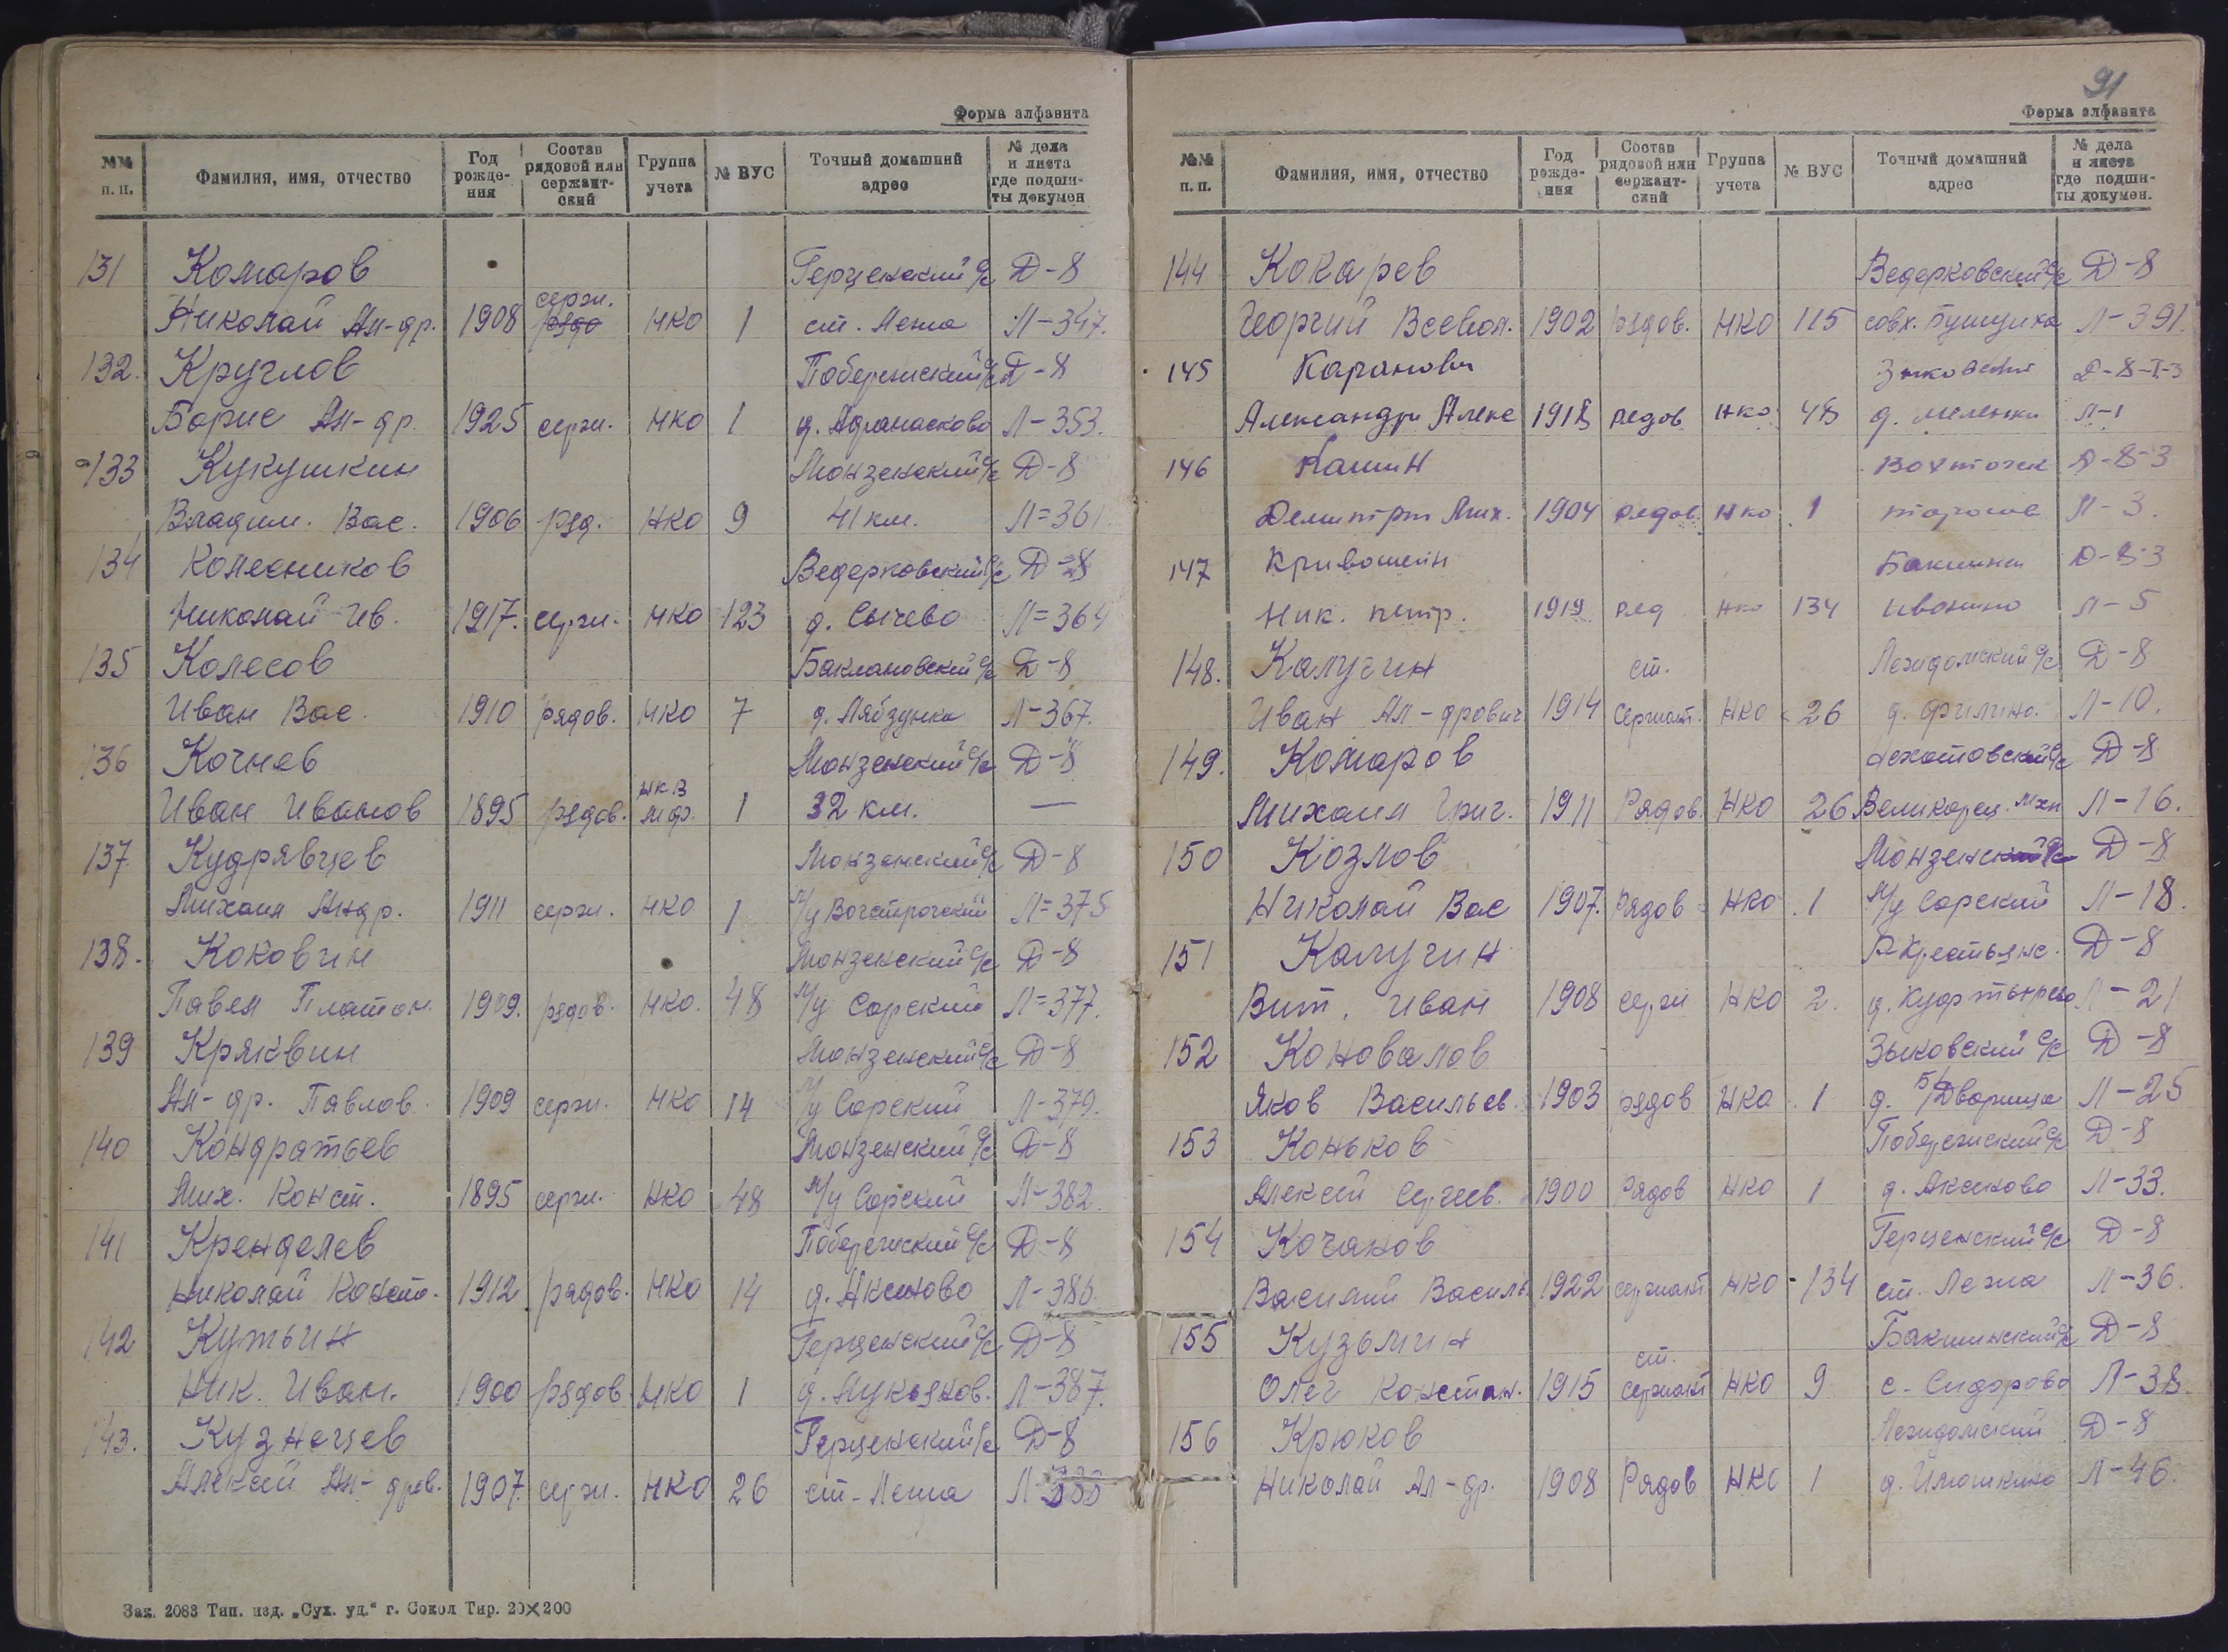 Форма алфавита
№№ п. п. Фамилия, имя, отчество Год рожде-ния Состав рядовой или сержант-ский Группа учета № ВУС Точный домашний адрес № дела и листа где подши-ты докумен
131 Комаров Герценский с/с Д-8
Николай Ал-др. 1908 серж. рядо НКО 1 ст. Лежа Л-347.
132. Круглов Побережский с/с Д-8
Борис Ал-др. 1925 серж. НКО 1 д. Афанасково Л-353.
133 Кукушкин Монзенский с/с Д-8
Владим. Вас. 1906 ряд. НКО 9 41 км. Л=361.
134 Колесников Ведерковский с/с Д=8
Николай Ив. 1917. серж. НКО 123 д. Сычево Л=364
135 Колесов Баклановский с/с Д-8
Иван Вас. 1910 рядов. НКО 7 д. Лябзунка Л-367.
136 Кочнев Монзенский с/с Д-8
Иван Иванов 1895 рядов. НКВ 1 32 км. —
137. Кудрявцев Монзенский с/с Д-8
Михаил Андр. 1911 серж. НКО 1 М/у Л=375
138. Коковин Монзенский с/с Д-8
Павел Платон. 1909. рядов. НКО. 48 М/у Сорский Л=377.
139 Кряквин Монзенский с/с Д-8
Ал-др. Павлов. 1909 серж. НКО 14 М/у Сорский Л-379.
140 Кондратьев Монзенский с/с Д-8
Мих. Конст. 1895 серж. НКО 48 М/у Сорский Л-382.
141 Кренделев Побережский с/с Д-8
Николай Конст. 1912 рядов. НКО 14 д. Аксеново Л-386.
142 Кутьин Герценский с/с Д-8
Ник. Иван. 1900 рядов НКО 1 д. Лукьянов. Л-387.
143. Кузнецев Герценский с/с Д-8
Алексей Ал-дров. 1907. серж. НКО 26 ст. Лежа Л-388
Зак. 2083 Тип. изд. „Сух. уд.“ г. Сокол Тир. 20×200
91
Форма алфавита
№№ п. п. Фамилия, имя, отчество Год рожде-ния Состав рядовой или сержант-ский Группа учета № ВУС Точный домашний адрес № дела и листа где подши-ты докумен.
144 Кокарев Ведерковский с/с Д-8
Георгий Всевол. 1902 рядов. НКО 115 совх. Л-391.
145 Каранович Д-8-I-3
Александр Алекс 1918 рядов НКО 48 д. Меленки Л-1
146 Кашин Д-8-3
Дмитрий Мих. 1904 рядов. НКО 1 Л-3.
147 Кривошеин Д-8-3
Ник. петр. 1919 ряд НКО 134 Иванино Л-5
148. Калугин Лежидомский с/с Д-8
Иван Ал-дрович 1914 ст. Сержант. НКО 26 д. Филино. Л-10.
149. Комаров с/с Д-8
Михаил Григ. 1911 Рядов. НКО 26 Великорец. Л-16.
150 Козлов Монзенский с/с Д-8
Николай Вас 1907. Рядов НКО 1 М/у Сорский Л-18.
151 Калугин Р-Крестьянс. Д-8
Вит. Иван 1908 серж НКО 2. д. Л-21
152 Коновалов Зыковский с/с Д-8
Яков Васильев. 1903 рядов НКО 1 д. Б/Дворища Л-25
153 Коньков Побережский с/с Д-8
Алексей Сергеев. 1900 Рядов НКО 1 д. Аксеново Л-33.
154 Кочанов Герценский с/с Д-8
Василий Василь. 1922 сержант НКО 134 ст. Лежа Л-36.
155 Кузьмин Бакшинский с/с Д-8
Олег Констан. 1915 ст. сержант НКО 9 с. Сидорово Л-38.
156 Крюков Лежидомский Д-8
Николай Ал-др. 1908 Рядов НКО 1 д. Л-46.